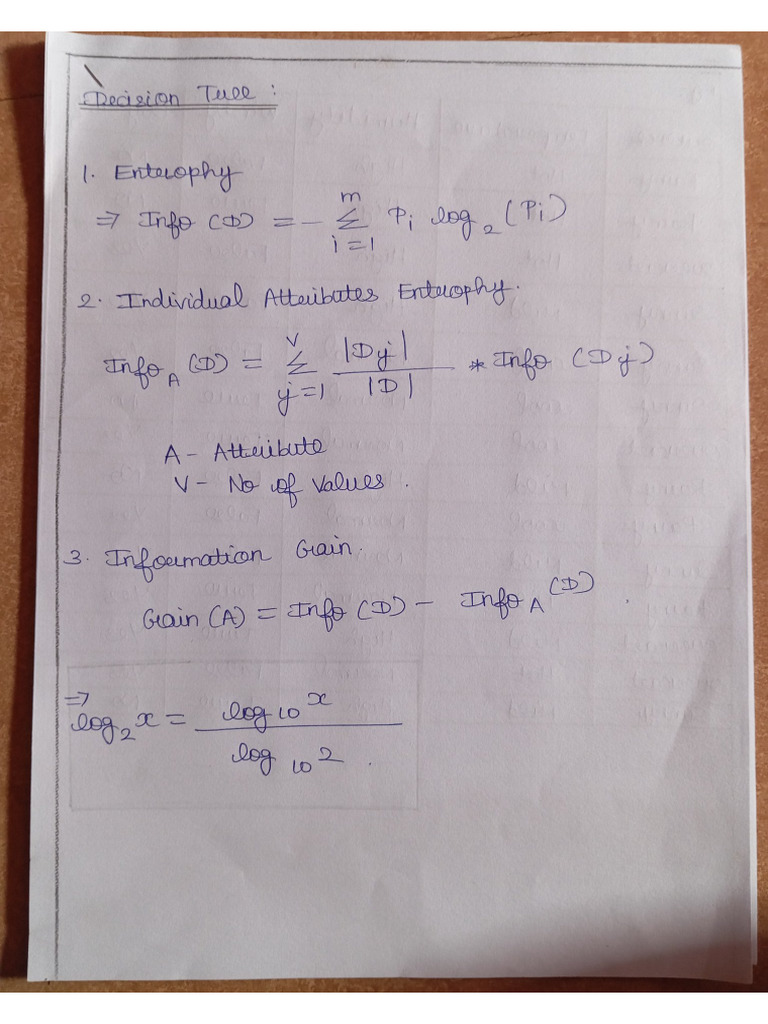 Decision Tree :
1. Enterophy
⇒ Info (D) = - m∑i=1 Pi log2 (Pi)
2. Individual Attributes Enterophy.
InfoA (D) = v∑j=1 |Dj| / |D| * Info (Dj)
A - Attribute
V - No of values .
3. Information Gain.
Gain (A) = Info (D) - InfoA (D) .
⇒ log2 x = log10 x / log10 2 .